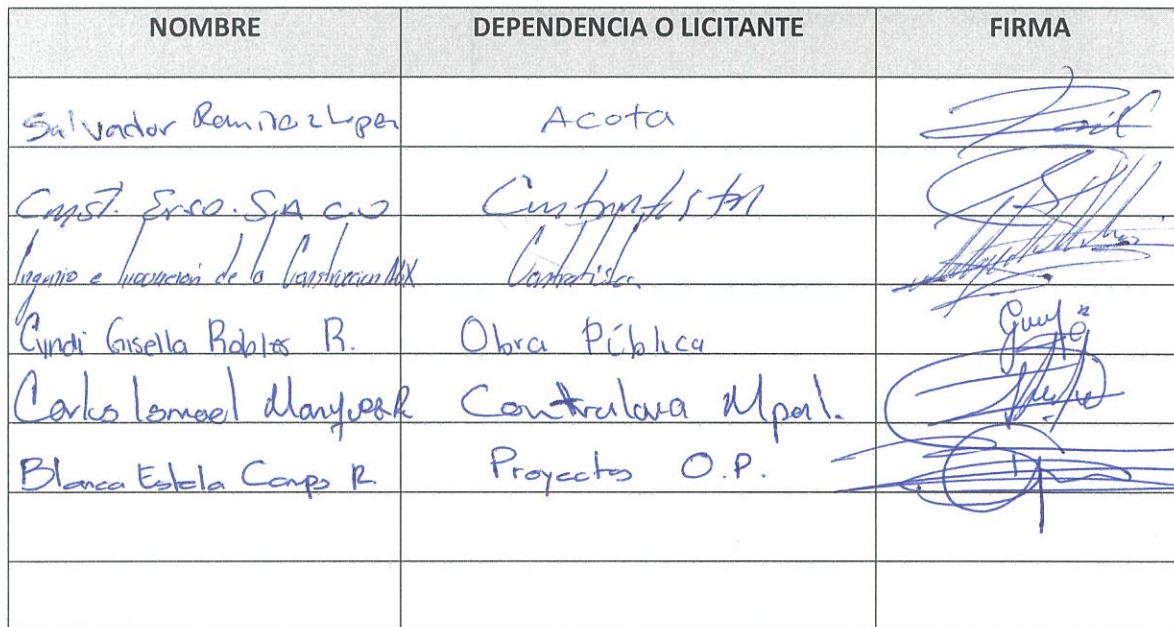 NOMBRE DEPENDENCIA O LICITANTE FIRMA
Salvador Ramirez Lopez Acota
Const. Erso. S.A C.V Contratista
Ingenio e Inovación de la Construccion MX Contratista
Cyndi Gisella Robles R. Obra Pública
Carlos Ismael R Contraloria Mpal.
Blanca Estela Campos R. Proyectos O.P.